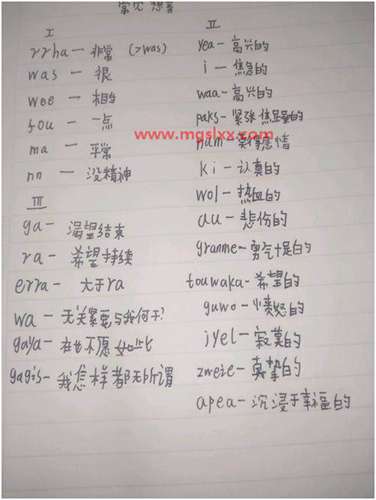 常见
I
rrha — 非常 (>was)
was — 很
wee — 相当
fou — 一点
ma — 平常
nn — 没精神
III
ga- 渴望结束
ra- 希望持续
erra- 大于ra
wa- 无关紧要与我何干?
gaya- 不愿如此
gagis- 我怎样都无所谓
II
yea- 高兴的
i- 焦急的
waa- 高兴的
paks- 紧张焦虑的
www.mgslxx.com
num- 没有感情
ki- 认真的
wol- 热血的
au- 悲伤的
granme- 勇气十足的
touwaka- 希望的
guwo- 愤怒的
jyel- 寂寞的
zweie- 真挚的
apea- 沉浸于幸福的